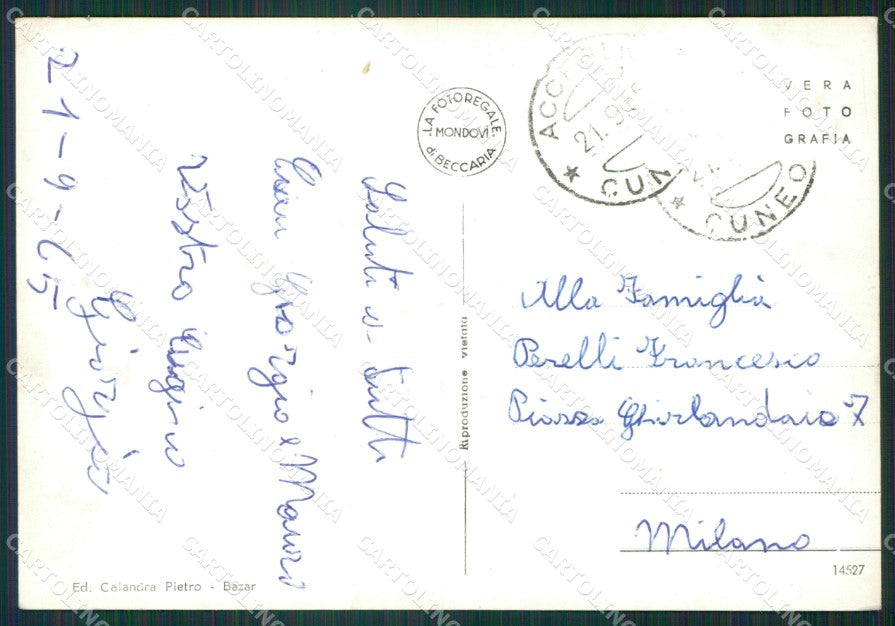 21-9-65
Saluti a tutti
Giorgio e Mauro
Vostro cugino
Giorgio
LA FOTOREGALE
MONDOVÌ
di BECCARIA
21.9
★ CUN
★ CUNEO
VERA
FOTO
GRAFIA
Riproduzione vietata
Alla Famiglia
Perelli Francesco
Piazza Ghirlandaio 7
Milano
Ed. Calandra Pietro - Bazar
14527
CARTOLINOMANIA